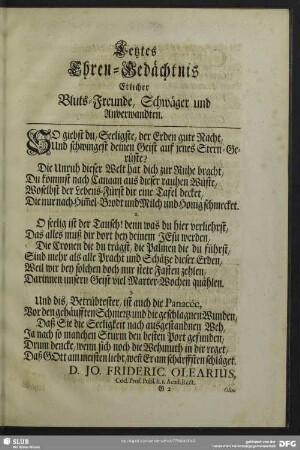 Letztes
Ehren-Gedächtnis
Etlicher
Bluts-Freunde, Schwäger und
Anverwandten.
SO giebst du, Seeligste, der Erden gute Nacht,
Und schwingest deinen Geist auf jenes Stern-Ge-
rüste;
Die Unruh dieser Welt hat dich zur Ruhe bracht,
Du kommst nach Canaan aus dieser rauhen Wüste,
Woselbst der Lebens-Fürst dir eine Tafel decket,
Die nur nach Him̃el-Brodt und Milch und Honig schmecket.
2.
O seelig ist der Tausch! denn was du hier verliehrst,
Das alles muß dir dort bey deinem JEsu werden,
Die Cronen die du trägst, die Palmen die du führst,
Sind mehr als alle Pracht und Schätze dieser Erden,
Weil wir bey solchen doch nur stete Fasten zehlen,
Darinnen unsern Geist viel Marter-Wochen quählen.
Und dis, Betrübtester, ist auch die Panacée,
Vor den gehäufften Schmertz und die geschlagnen Wunden,
Daß Sie die Seeligkeit nach ausgestandnen Weh,
Ja nach so manchen Sturm den besten Port gefunden,
Drum dencke, wenn sich noch die Wehmuth in dir reget,
Daß GOtt am meisten liebt, weñ Er am schärfften schläget.
D. JO. FRIDERIC. OLEARIUS,
Cod. Prof. Publ. h. t. Acad. Rect.
G 2
SLUB